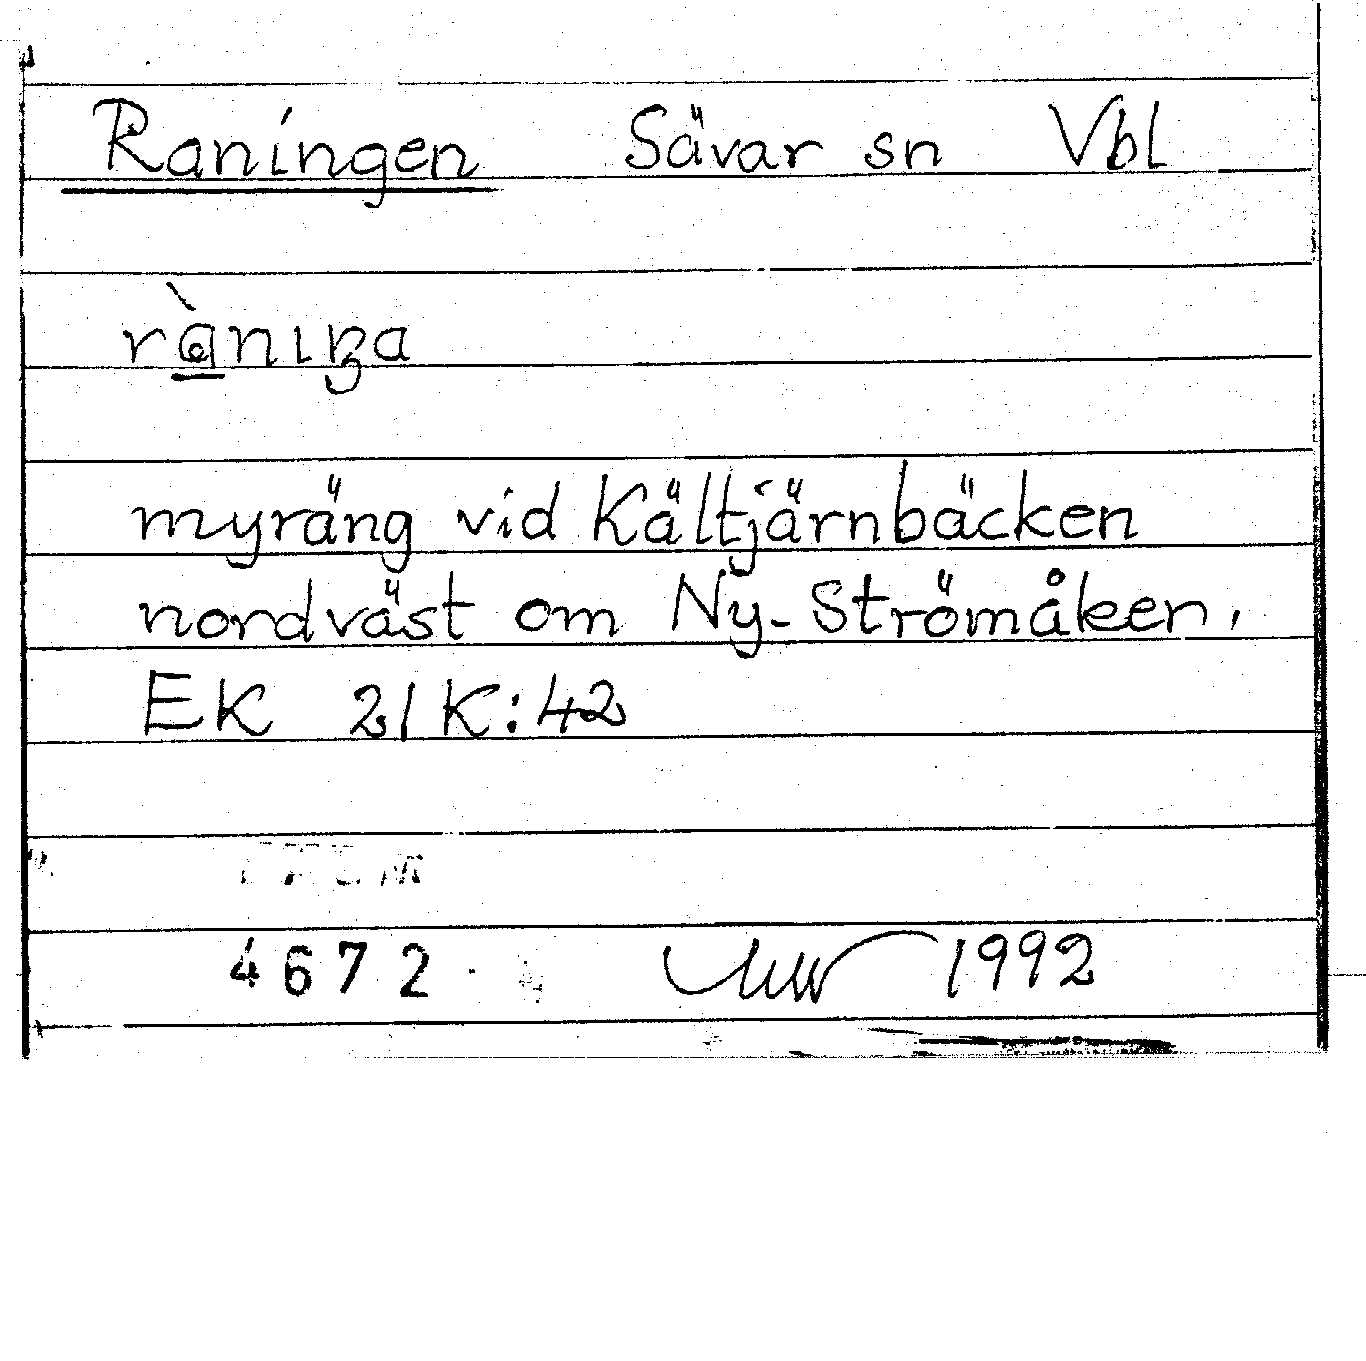 Raningen Sävar sn Vbl
myräng vid Kältjärnbäcken
nordväst om Ny-Strömåker,
EK 21K:42
4672 1992